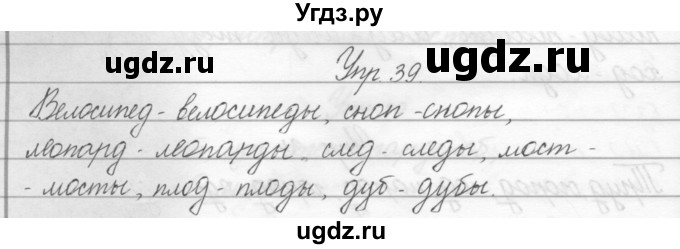 Угдз.ру
ugdz.ru ugdz.ru ugdz.ru
Упр. 39.
Велосипед - велосипеды, сноп - снопы,
леопард - леопарды след - следы, мост -
- мосты, плод - плоды, дуб - дубы.
ugdz.ru ugdz.ru